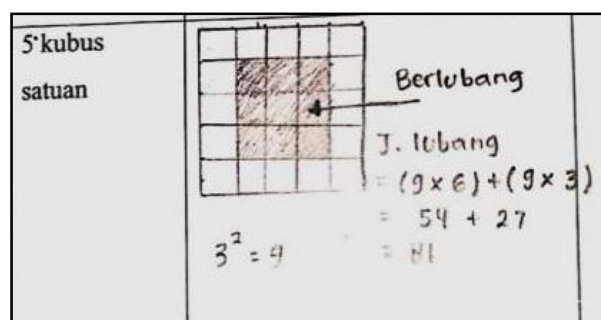 5 kubus
satuan
Berlubang
J. lubang
= (9 x 6) + (9 x 3)
= 54 + 27
= 81
3² = 9